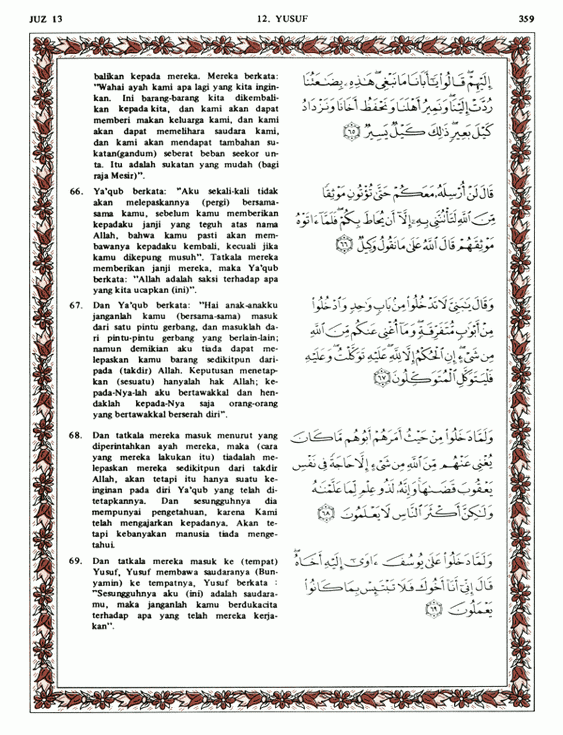 JUZ 13
12. YUSUF
359
balikan kepada mereka. Mereka berkata:
"Wahai ayah kami apa lagi yang kita ingin-
kan. Ini barang-barang kita dikembali-
kan kepada kita, dan kami akan dapat
memberi makan keluarga kami, dan kami
akan dapat memelihara saudara kami,
dan kami akan mendapat tambahan su-
katan(gandum) seberat beban seekor un-
ta. Itu adalah sukatan yang mudah (bagi
raja Mesir)".
66. Ya'qub berkata: "Aku sekali-kali tidak
akan melepaskannya (pergi) bersama-
sama kamu, sebelum kamu memberikan
kepadaku janji yang teguh atas nama
Allah, bahwa kamu pasti akan mem-
bawanya kepadaku kembali, kecuali jika
kamu dikepung musuh". Tatkala mereka
memberikan janji mereka, maka Ya'qub
berkata: "Allah adalah saksi terhadap apa
yang kita ucapkan (ini)".
67. Dan Ya'qub berkata: "Hai anak-anakku
janganlah kamu (bersama-sama) masuk
dari satu pintu gerbang, dan masuklah da-
ri pintu-pintu gerbang yang berlain-lain;
namun demikian aku tiada dapat me-
lepaskan kamu barang sedikitpun dari-
pada (takdir) Allah. Keputusan menetap-
kan (sesuatu) hanyalah hak Allah; ke-
pada-Nya-lah aku bertawakkal dan hen-
daklah kepada-Nya saja orang-orang
yang bertawakkal berserah diri".
68. Dan tatkala mereka masuk menurut yang
diperintahkan ayah mereka, maka (cara
yang mereka lakukan itu) tiadalah me-
lepaskan mereka sedikitpun dari takdir
Allah, akan tetapi itu hanya suatu ke-
inginan pada diri Ya'qub yang telah di-
tetapkannya. Dan sesungguhnya dia
mempunyai pengetahuan, karena Kami
telah mengajarkan kepadanya. Akan te-
tapi kebanyakan manusia tiada menge-
tahui.
69. Dan tatkala mereka masuk ke (tempat)
Yusuf, Yusuf membawa saudaranya (Bun-
yamin) ke tempatnya, Yusuf berkata :
"Sesungguhnya aku (ini) adalah saudara-
mu, maka janganlah kamu berdukacita
terhadap apa yang telah mereka kerja-
kan".
إِلَيْهِمْ قَالُوا۟ يَٰٓأَبَانَا مَا نَبْغِى هَٰذِهِۦ بِضَٰعَتُنَا
رُدَّتْ إِلَيْنَا وَنَمِيرُ أَهْلَنَا وَنَحْفَظُ أَخَانَا وَنَزْدَادُ
كَيْلَ بَعِيرٍ ذَٰلِكَ كَيْلٌ يَسِيرٌ ٦٥
قَالَ لَنْ أُرْسِلَهُۥ مَعَكُمْ حَتَّىٰ تُؤْتُونِ مَوْثِقًا
مِّنَ ٱللَّهِ لَتَأْتُنَّنِى بِهِۦٓ إِلَّآ أَن يُحَاطَ بِكُمْ فَلَمَّآ ءَاتَوْهُ
مَوْثِقَهُمْ قَالَ ٱللَّهُ عَلَىٰ مَا نَقُولُ وَكِيلٌ ٦٦
وَقَالَ يَٰبَنِىَّ لَا تَدْخُلُوا۟ مِنۢ بَابٍ وَٰحِدٍ وَٱدْخُلُوا۟
مِنْ أَبْوَٰبٍ مُّتَفَرِّقَةٍ وَمَآ أُغْنِى عَنكُم مِّنَ ٱللَّهِ
مِن شَىْءٍ إِنِ ٱلْحُكْمُ إِلَّا لِلَّهِ عَلَيْهِ تَوَكَّلْتُ وَعَلَيْهِ
فَلْيَتَوَكَّلِ ٱلْمُتَوَكِّلُونَ ٦٧
وَلَمَّا دَخَلُوا۟ مِنْ حَيْثُ أَمَرَهُمْ أَبُوهُم مَّا كَانَ
يُغْنِى عَنْهُم مِّنَ ٱللَّهِ مِن شَىْءٍ إِلَّا حَاجَةً فِى نَفْسِ
يَعْقُوبَ قَضَىٰهَا وَإِنَّهُۥ لَذُو عِلْمٍ لِّمَا عَلَّمْنَٰهُ
وَلَٰكِنَّ أَكْثَرَ ٱلنَّاسِ لَا يَعْلَمُونَ ٦٨
وَلَمَّا دَخَلُوا۟ عَلَىٰ يُوسُفَ ءَاوَىٰٓ إِلَيْهِ أَخَاهُ
قَالَ إِنِّىٓ أَنَا۠ أَخُوكَ فَلَا تَبْتَئِسْ بِمَا كَانُوا۟
يَعْمَلُونَ ٦٩